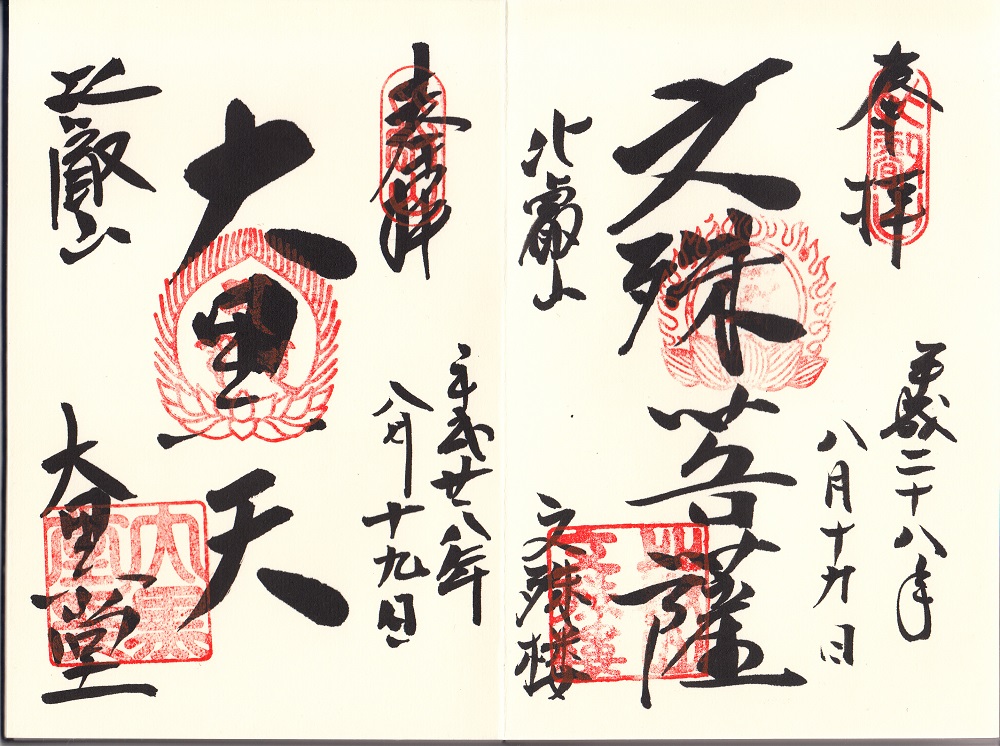 奉拝
平成二十八年
八月十九日
文殊菩薩
比叡山
文殊楼
奉拝
平成廿八年
八月十九日
大黒天
比叡山
大黒堂